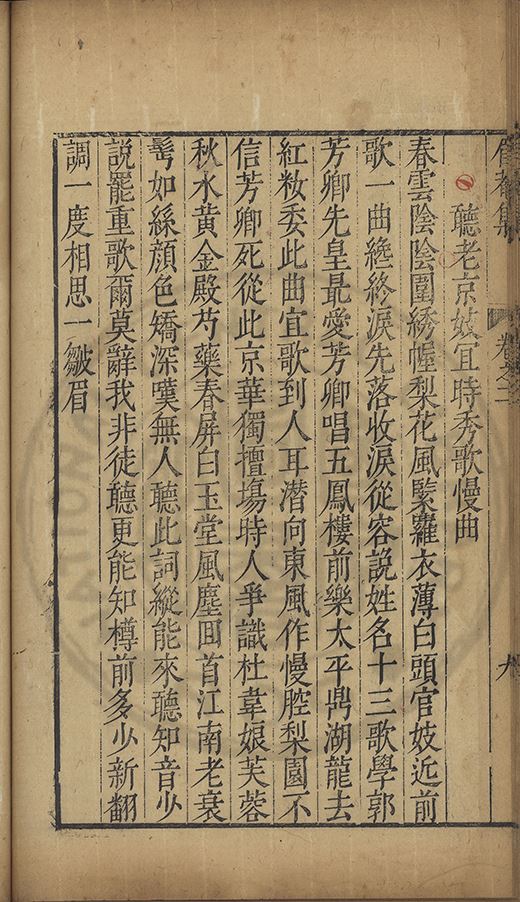 集 卷之二 九
聽老京妓宜時秀歌慢曲
春雲陰陰圍綉幄梨花風緊羅衣薄白頭官妓近前
歌一曲纔終淚先落收淚從容說姓名十三歌學郭
芳卿先皇最愛芳卿唱五鳳樓前樂太平鼎湖龍去
紅籹委此曲宜歌到人耳潛向東風作慢腔梨園不
信芳卿死從此京華獨擅塲時人爭識杜韋娘芙蓉
秋水黃金殿芍藥春屏白玉堂風塵囬首江南老衰
髩如絲顏色矯深嘆無人聽此詞縱能來聽知音少
說罷重歌爾莫辭我非徒聽更能知樽前多少新翻
調一度相思一皺眉